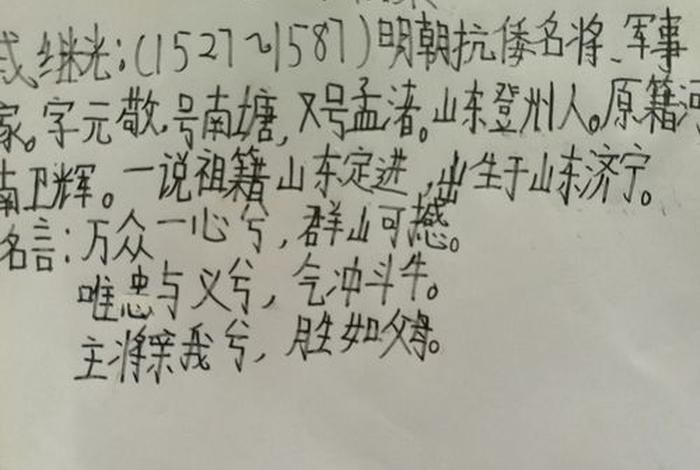 戚继光:(1527~1587)明朝抗倭名将、军事
家。字元敬,号南塘,又号孟渚。山东登州人。原籍河
南卫辉。一说祖籍山东定进,出生于山东济宁。
名言:万众一心兮,群山可撼。
唯忠与义兮,气冲斗牛。
主将亲我兮,胜如父母。